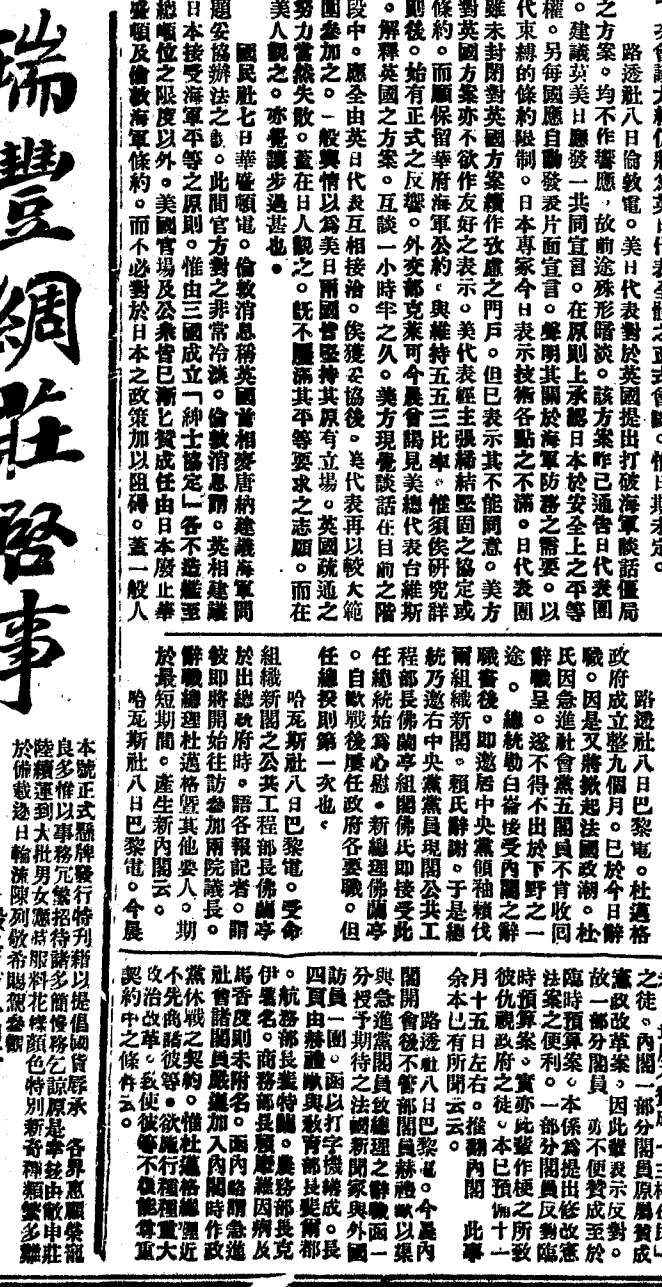 路透社八日倫敦電。美日代表對於英國提出打破海軍談話僵局
之方案。均不作響應。故前途殊形暗淡。該方案昨已通告日代表團
。建議英美日應發一共同宣言。在原則上承認日本於安全上之平等
權。另每國應自動發表片面宣言。聲明其關於海軍防務之需要。以
代束縛的條約限制。日本專家今日表示技術各點之不滿。日代表團
雖未封閉對英國方案續作攷慮之門戶。但已表示其不能同意。美方
對英國方案亦不欲作友好之表示。美代表經主張締結堅固之協定或
條約。而願保留華府海軍公約。與維持五五三比率。惟須俟研究詳
則後。始有正式之反響。外交部克萊可今晨曾謁見美總代表台維斯
。解釋英國之方案。互談一小時半之久。美方現覺談話在目前之階
段中。應全由英日代表互相接洽。俟獲妥協後。美代表再以較大範
圍參加之。一般輿情以為美日兩國皆堅持其原有立場。英國疏通之
努力當然失敗。蓋在日人觀之。旣不饜滿其平等要求之志願。而在
美人觀之。亦覺讓步過甚也。
國民社七日華盛頓電。倫敦消息稱英國首相麥唐納建議海軍問
題妥協辦法之說。此間官方對之非常冷淡。倫敦消息謂。英相建議
日本接受海軍平等之原則。惟由三國成立「紳士協定」各不造艦至
總噸位之限度以外。美國官場及公衆皆已漸匕贊成任由日本廢止華
盛頓及倫敦海軍條約。而不必對於日本之政策加以阻碍。蓋一般人
路透社八日巴黎電。杜邁格
政府成立整九個月。已於今日辭
職。因是又將掀起法國政潮。杜
氏因急進社會黨五閣員不肯收回
辭職呈。遂不得不出於下野之一
途。總統勒白崙接受內閣之辭
職書後。即邀居中央黨領袖賴伐
爾組織新閣。賴氏辭謝。于是總
統乃邀右中央黨黨員現閣公共工
程部長佛蘭亭組閣佛氏即接受此
任總統始爲心慰。新總理佛蘭亭
。自歐戰後屢任政府各要職。但
任總揆則第一次也。
哈瓦斯社八日巴黎電。受命
組織新閣之公共工程部長佛蘭亭
於出總統府時。語各報記者。謂
彼即將開始往訪參加兩院議長。
辭職總理杜邁格曁其他要人。期
於最短期間。產生新內閣云。
哈瓦斯社八日巴黎電。今晨
之徒。內閣一部分閣員原屬贊成
憲政改革案。因此輩表示反對。
故一部分閣員 亦不便贊成至於
臨時預算案。本係爲提出修改憲
法案之便利。一部分閣員反對臨
時預算案。實亦此輩作梗之所致
彼仇視政府之徒。本已預備十一
月十五日左右。推翻內閣 此事
余本已有所聞云云。
路透社八日巴黎電。今晨內
閣開會後不管部閣員赫禮歐以集
與急進黨閣員致總理之辭職函一
分授予期待之法國新聞家與外國
訪員一團。函以打字機繕成。長
四頁由赫禮歐與教育部長
。航務部長 農務部長克
伊署名。商務部長 因病及
馬香度則未附名。函內略謂急進
社會諸閣員嚴謹加入內閣時作政
黨休戰之契約。惟杜邁格總理近
不先商諸彼等。欲施行種種重大
政治改革。致使彼等不復能尊重
契約中之條件云。
瑞豐綢莊啓事
本號正式懸牌發行特刊藉以提倡國貨辱承 各界惠顧榮寵
良多惟以事務冗繁招待諸多簡慢務乞諒原是幸茲由敝申莊
陸續運到大批男女應時服料花樣顏色特別新奇種類繁多難
於備載逐日輪流陳列敬希賜駕參觀